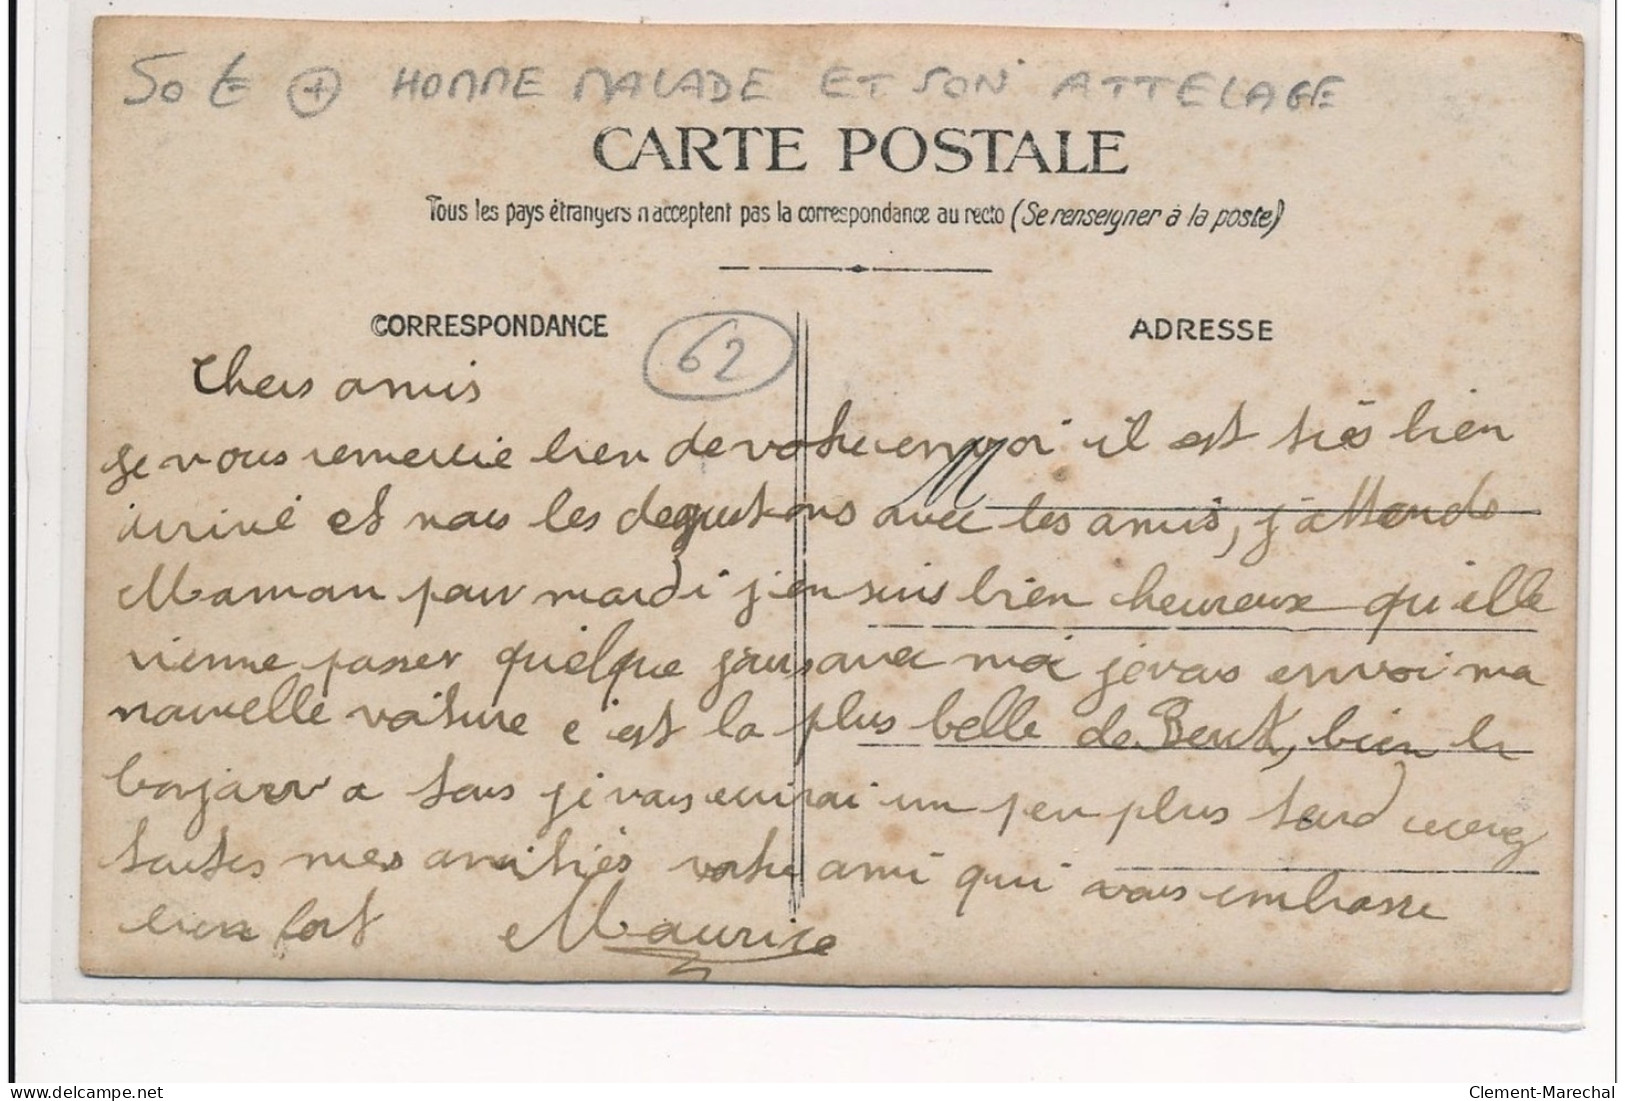 50 € + HOMME MALADE ET SON ATTELAGE
CARTE POSTALE
Tous les pays étrangers n'acceptent pas la correspondance au recto (Se renseigner à la poste)
CORRESPONDANCE
62
ADRESSE
Chers amis
je vous remercie bien de votre envoi il est très bien
M
arrivé et nous les degustons avec les amis, j'attends
Maman pour mardi j'en suis bien heureux qu'elle
vienne passer quelque jours avec moi je vous envoi ma
nouvelle voiture c'est la plus belle de Berck, bien le
bonjour a tous je vous ecrirai un peu plus tard recevez
toutes mes amitiés votre ami qui vous embrasse
bien fort Maurice
www.delcampe.net
Clement-Marechal